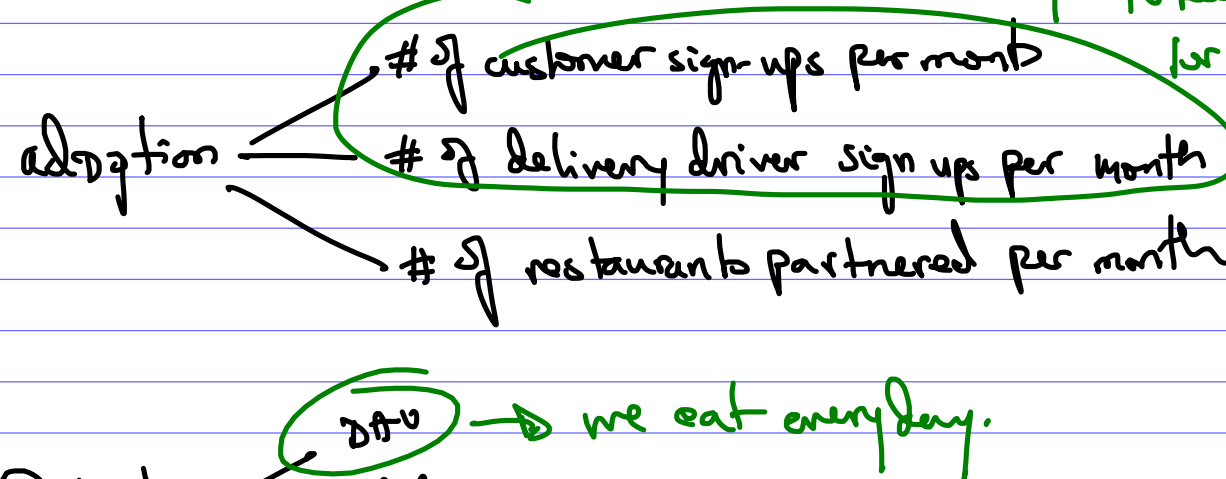 for
# of customer sign-ups per month
adoption
# of delivery driver sign ups per month
# of restaurants partnered per month
DAU → we eat everyday.